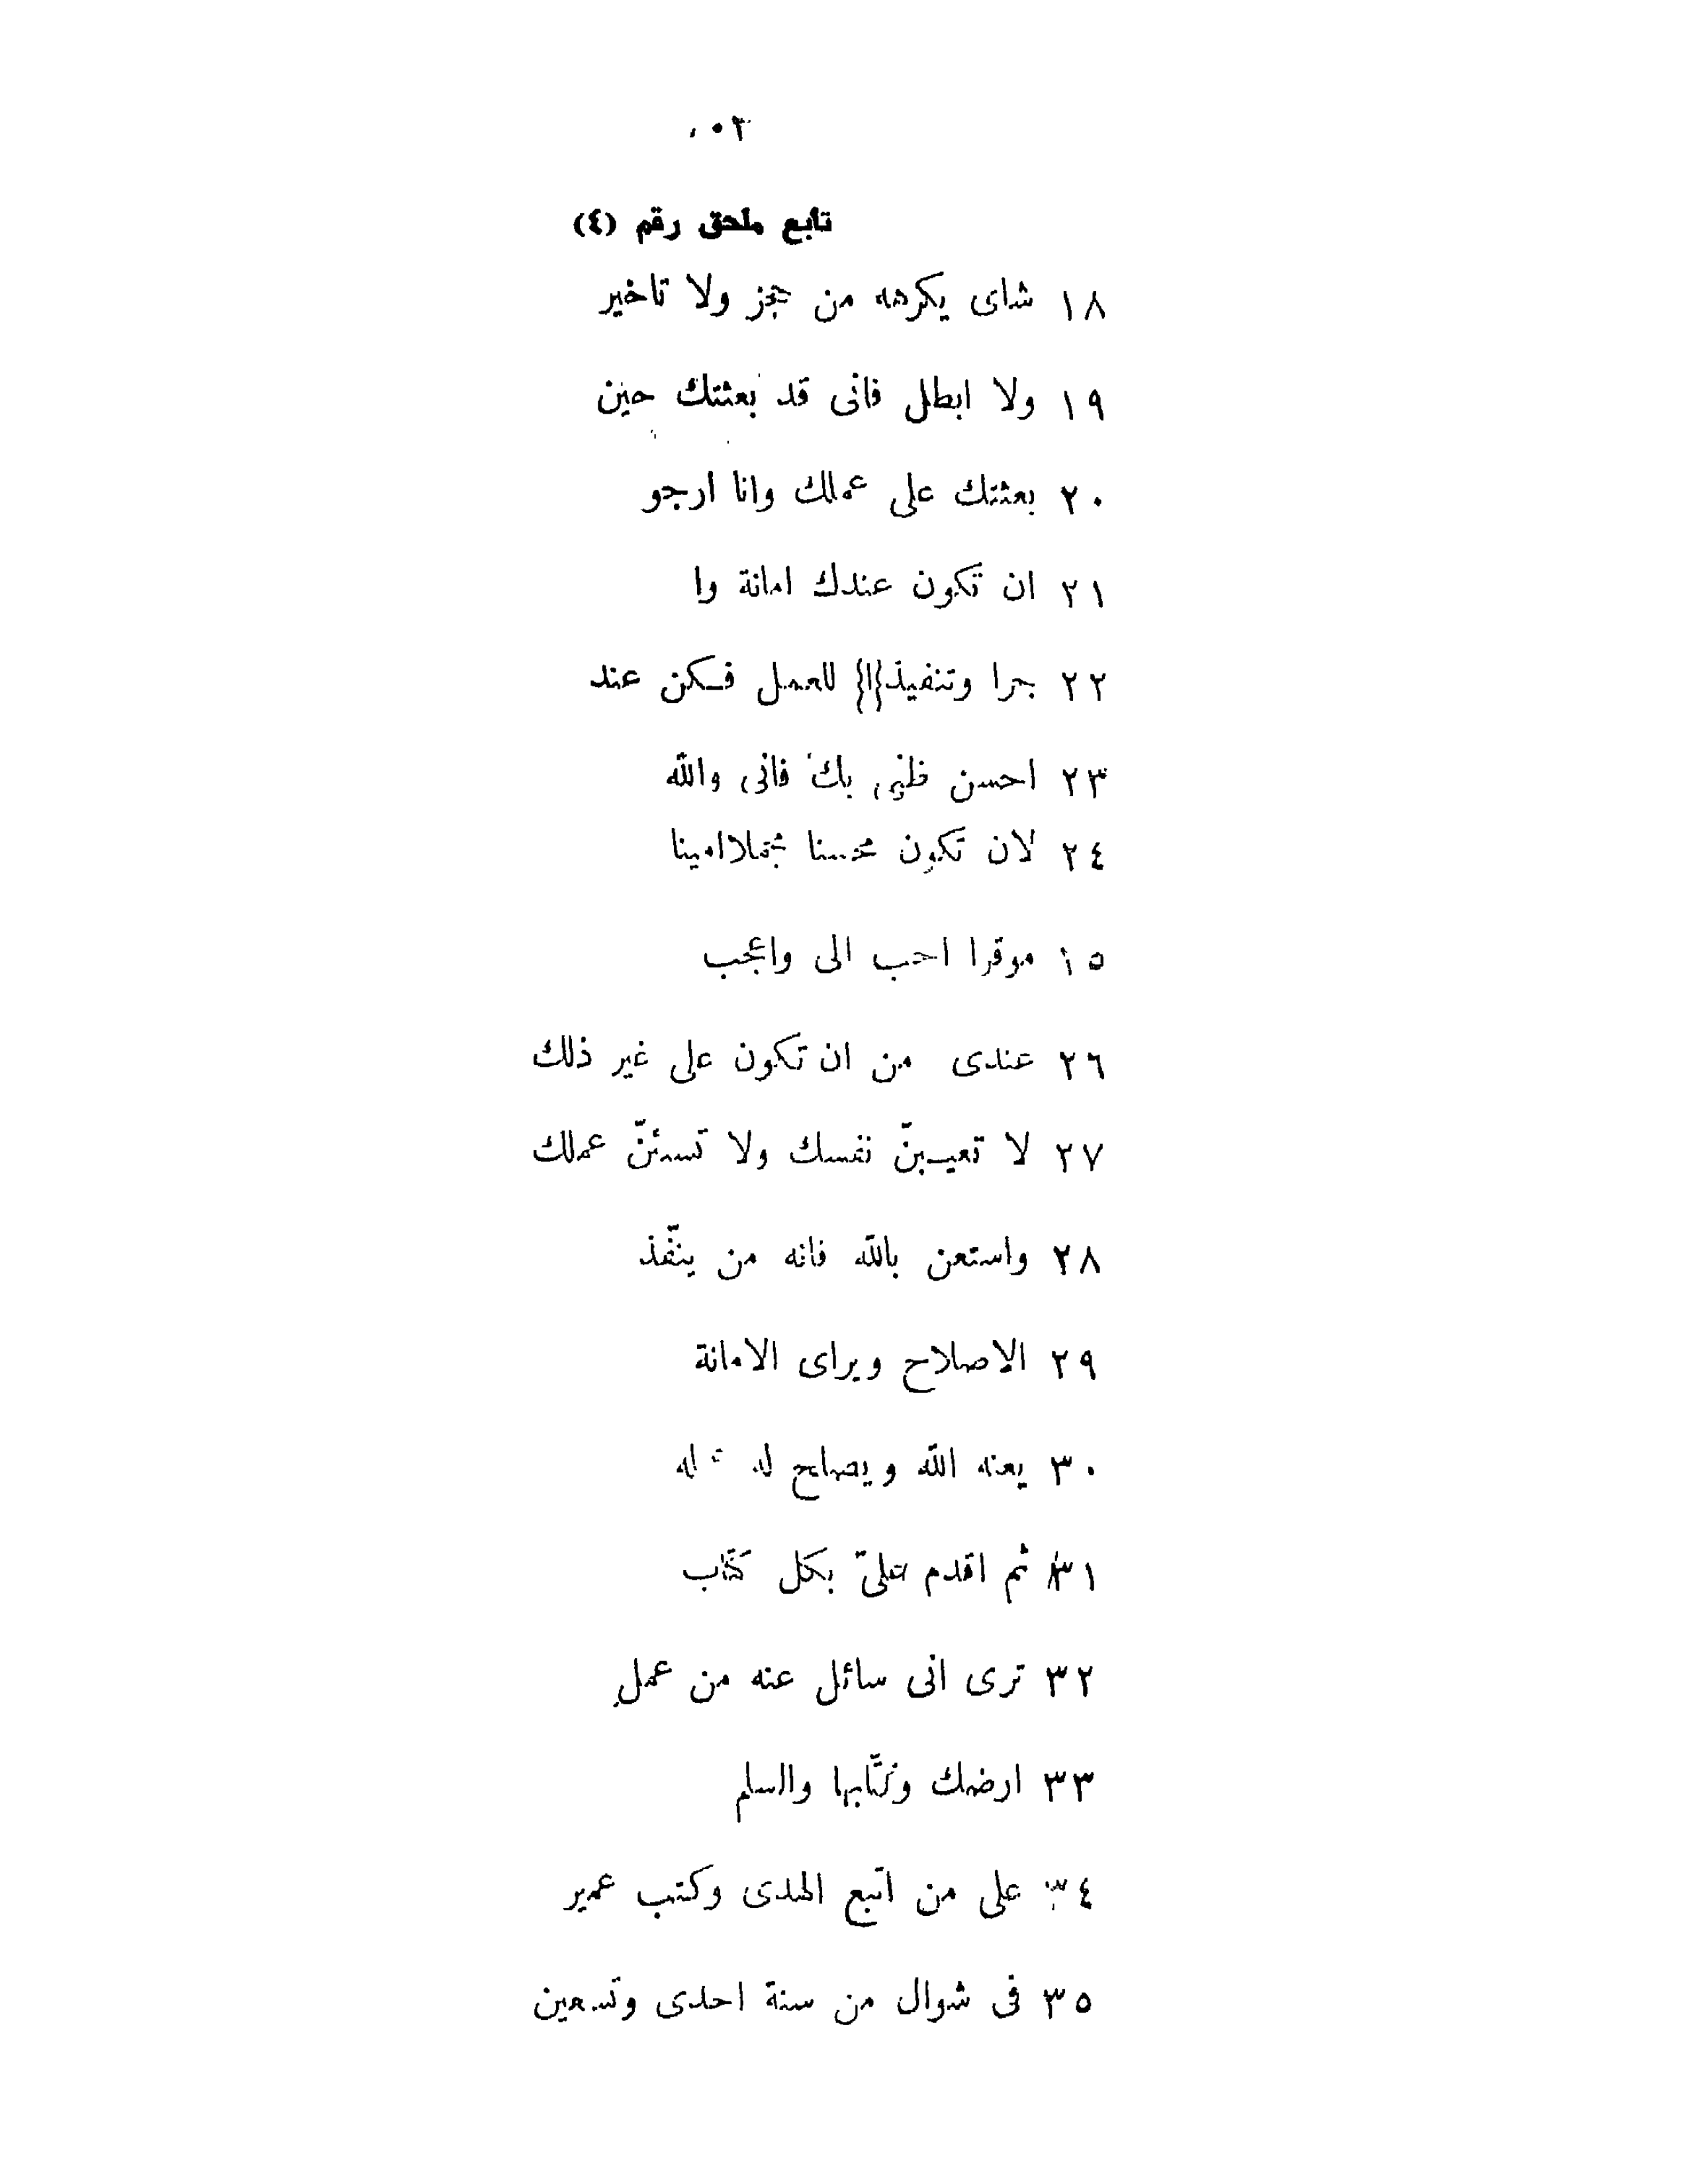 تابع ملحق رقم (٤)
١٨ شاى يكرهه من عجز ولا تاخير
١٩ ولا ابطل فانى قد بعثتك حين
٢٠ بعثتك على عملك وانا ارجو
٢١ ان تكون عندك امانة وا
٢٢ جرا وتنفيذ{ا} للعمل فكن عند
٢٣ احسن ظنى بك فانى والله
٢٤ لان تكون محسنا مجملا امينا
١٥ موقرا احب الى واعجب
٢٦ عندى من ان تكون على غير ذلك
٢٧ لا تعيبنّ نفسك ولا تسئنّ عملك
٢٨ واستعن بالله فانه من ينفّذ
٢٩ الاصلاح ويراى الامانة
٣٠ يعنه الله ويصلح له
٣١ ثم اقدم علىّ بكل كتاب
٣٢ ترى انى سائل عنه من عمل
٣٣ ارضك وكتّابها والسلم
٣٤ على من اتبع الهدى وكتب عمير
٣٥ فى شوال من سنة احدى وتسعين